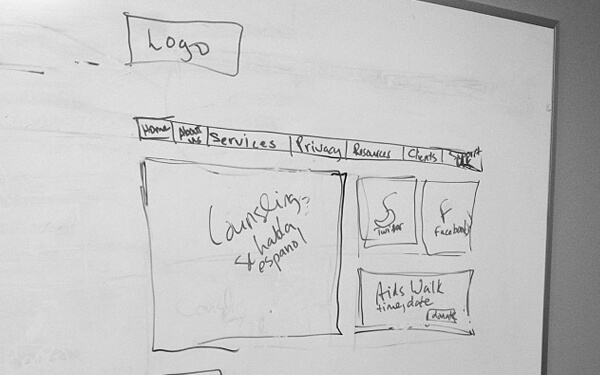 Logo
Home
About
us
Services
Privacy
Resources
Clients
Counsling
se habla
español
Twitter
F
Facebook
Aids Walk
time, date
donate